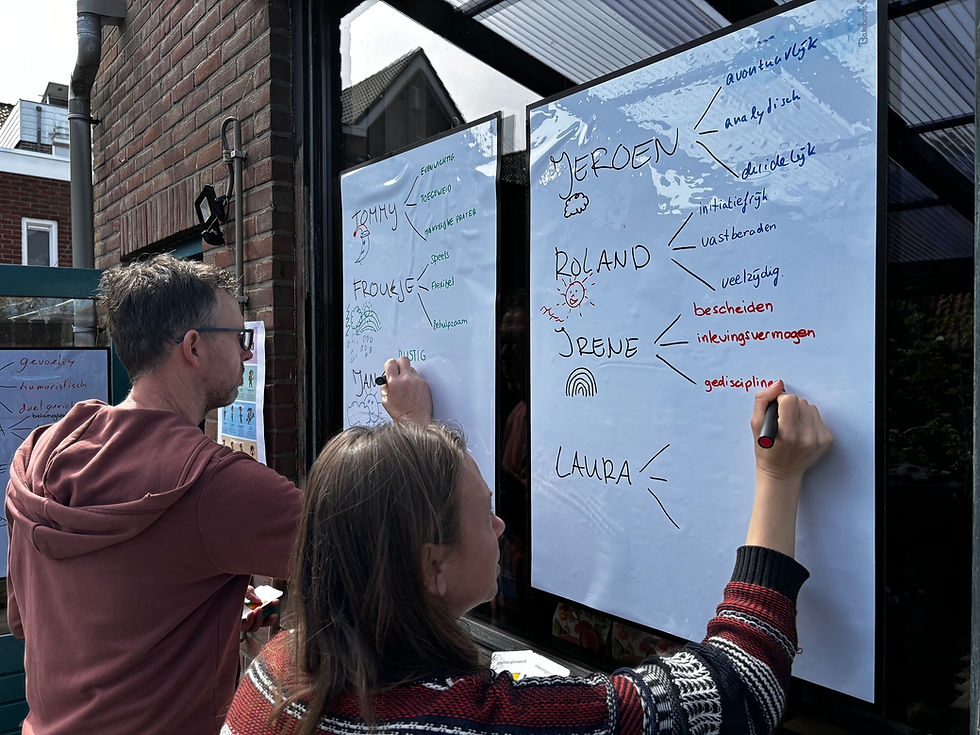 gevoelig
humoristisch
doelgericht
TOMMY
EVENWICHTIG
TOEGEWIJD
MAKKELIJKE PRATER
FROUKJE
Speels
Flexibel
Behulpzaam
JAN
RUSTIG
JEROEN
avontuurlijk
analytisch
duidelijk
ROLAND
initiatiefrijk
vastberaden
veelzijdig
IRENE
bescheiden
inlevingsvermogen
gedisciplinee
LAURA